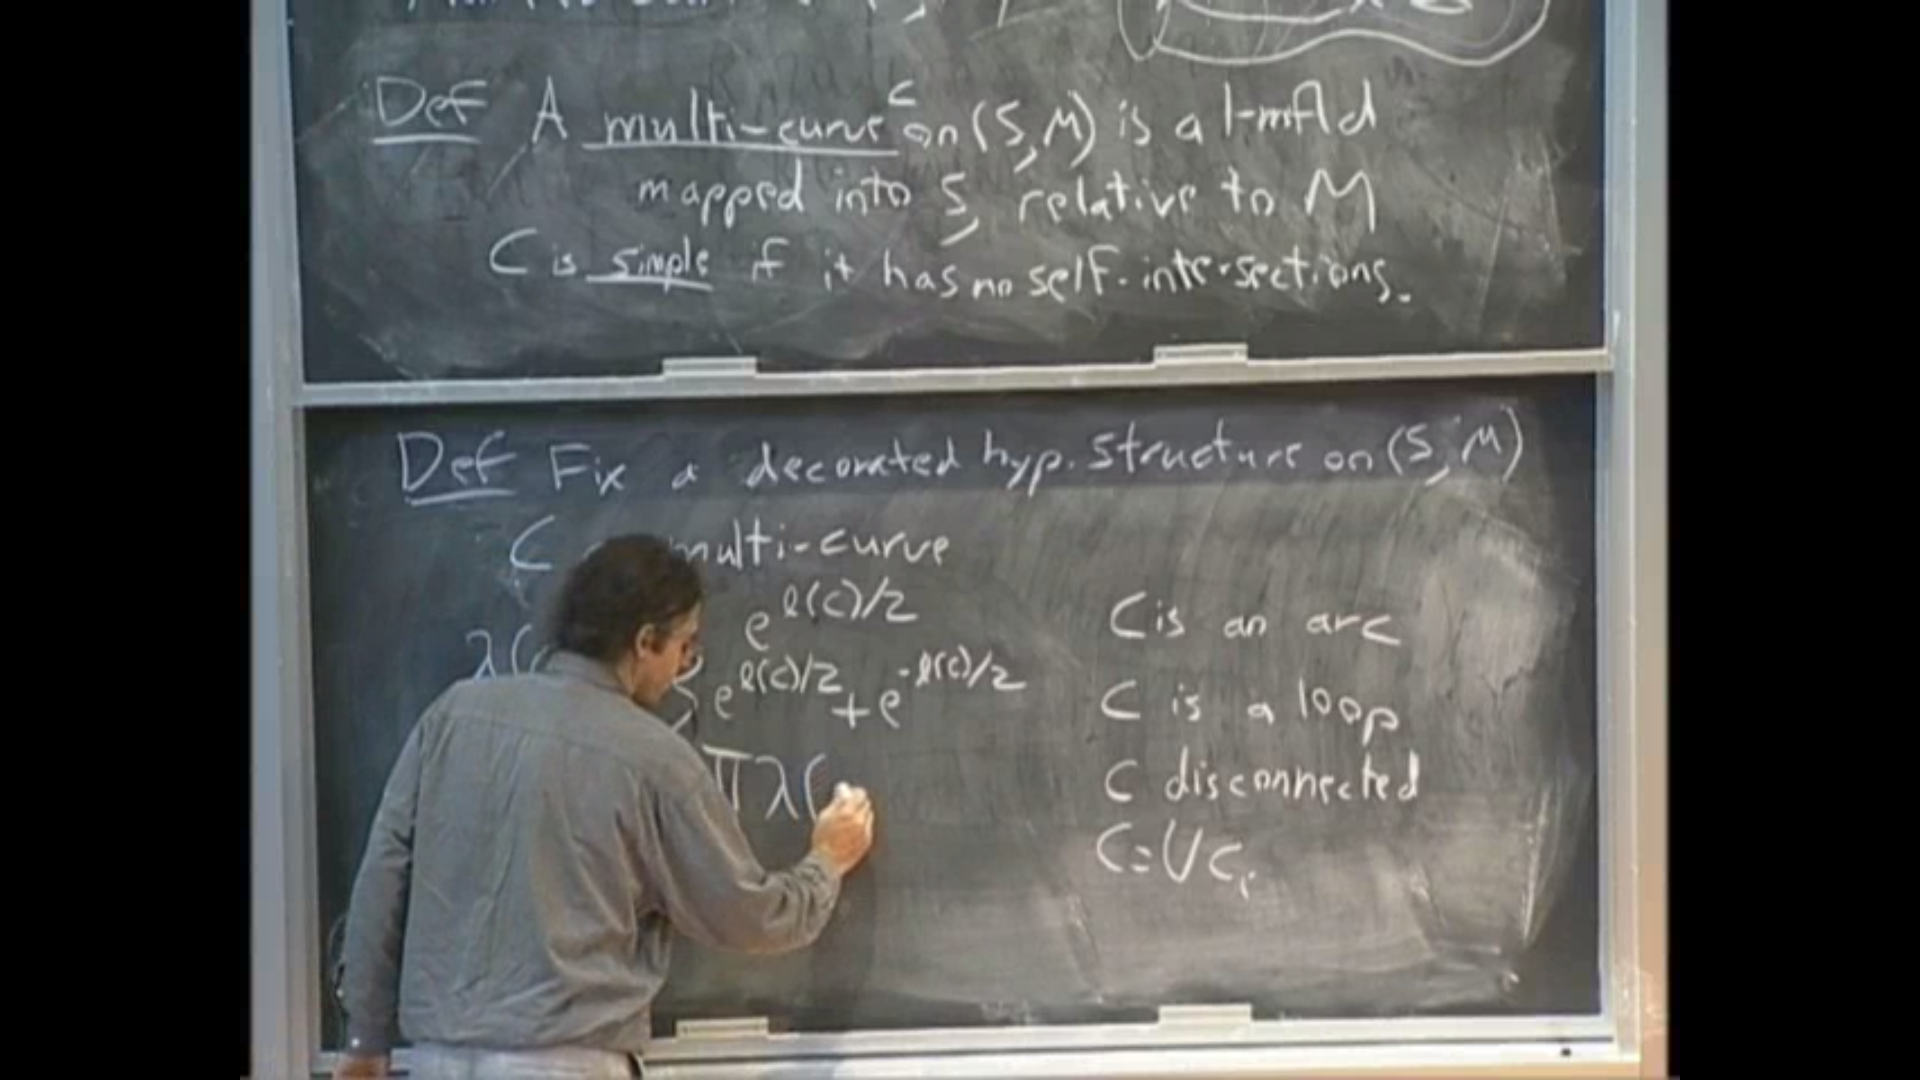 Def A multi-curve C on (S, M) is a 1-mfld
mapped into S, relative to M
C is simple if it has no self-intersections.
Def Fix a decorated hyp. structure on (S, M)
C multi-curve
λ( e^{l(C)/2} C is an arc
e^{l(C)/2} + e^{-l(C)/2} C is a loop
∏ λ( C disconnected
C = ∪ C_i